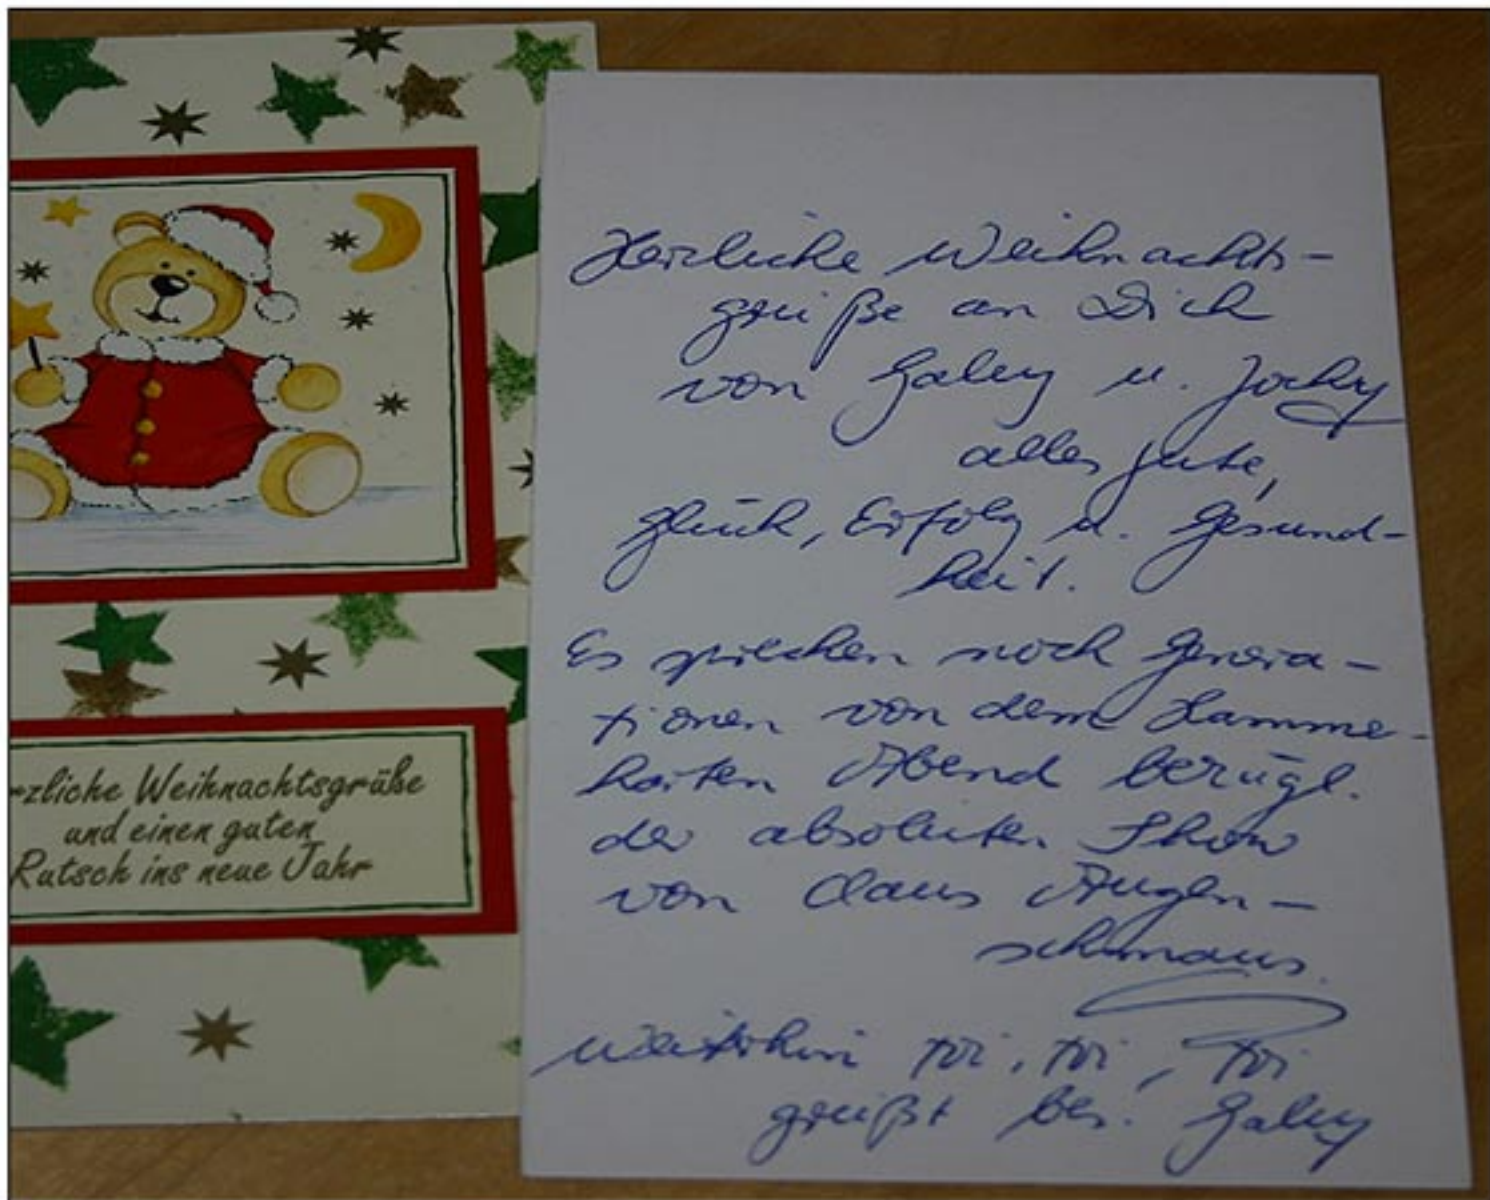 rzliche Weihnachtsgrüße
und einen guten
Rutsch ins neue Jahr
Herzliche Weihnachts-
grüße an Dich
von Gaby u. Jocky
alles gute,
Glück, Erfolg u. Gesund-
heit.
Es sprechen noch Genera-
tionen von dem Hamme-
haften Abend bezügl.
der absoluten Show
von Claus Augen-
schmaus.
Weiterhin toi, toi, toi
grüßt bes. Gaby